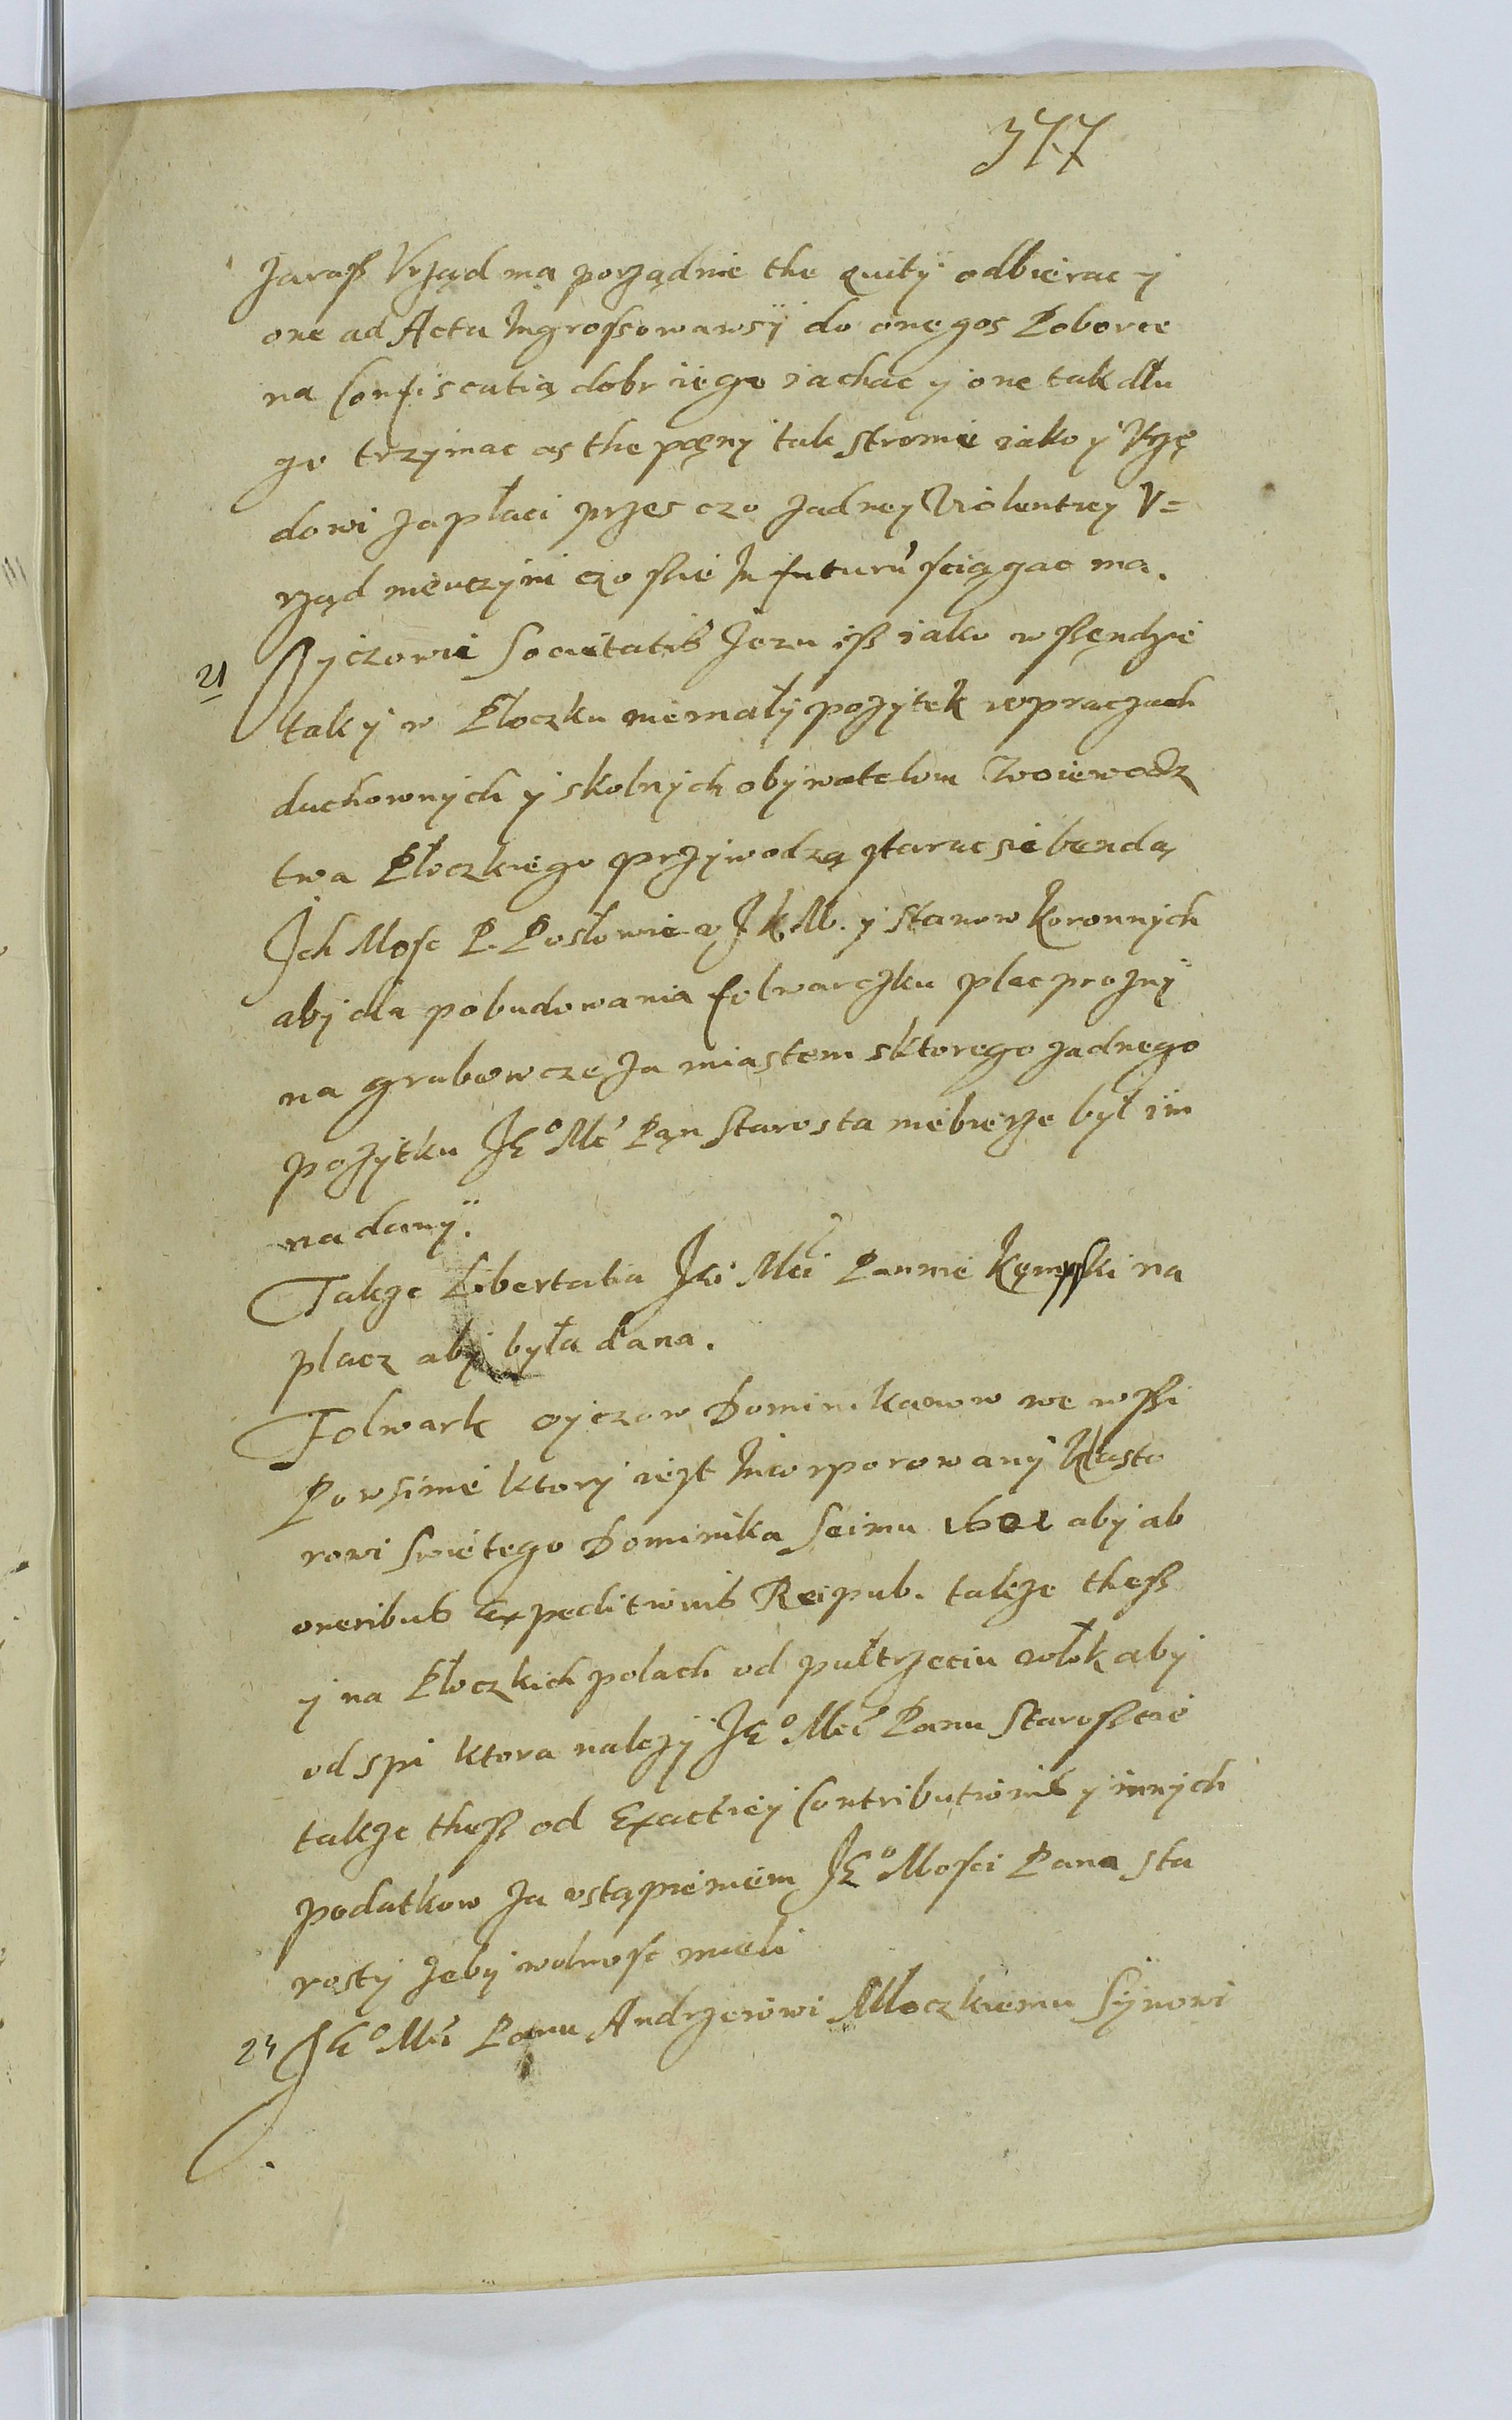 377
Zarass Vrząd ma porządnie the quity odbierac y
one ad Acta Ingrossowawsy do onegos Poborce
na Confiscatią dobr iego iachac y one tak dłu
go trzymac as the pęny tak stronie iako y Vrzę
dowi zapłaci przes czo zadney Violentiey V=
rząd nieuczyni czo sie In futurū sciągac ma.
21 Oyczowie Societatis Jezu iss iako wssędzie
tak y w Płoczku niemały pozytek w praczach
duchownych y skolnych obywatelom Woiewodz
twa Płoczkiego przywodzą starac sie bendą
Ich Mosc P. Posłowie v J K. M. y Stanow Koronnych
aby dla pobudowania folwarczku plac prozny
na grabowcze za miastem sktorego zadnego
pozytku JE° Mć Pan Starosta niebierze był im
nadany.
Takze Libertatia Jei Mci Pannie Kempski na
placz aby była dana.
Folwark oyczow Dominikanow we wssi
Powsinie ktory iezt Incorporowany Klasto
rowi Swietego Dominika Seimu 1601 aby ab
oneribus expeditionis Reipub. takze thess
y na Płoczkich polach od pułtrzeciu włok aby
od spi ktora nalezy JE° Mci Panu Starosscie
takze thess od Exactiey Contributionis y innych
podatkow za vstąpieniem JE° Mosci Pana sta
rosty zeby wolnosc mieli
JE° Mci Panu Andrzeiowi Młoczkiemu Synowi